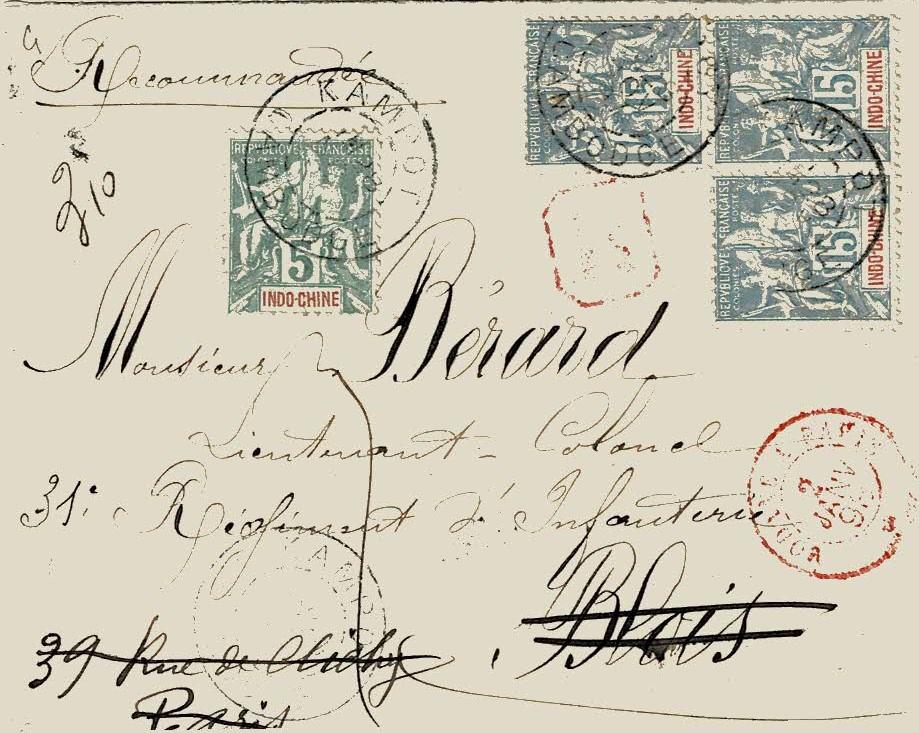 Recommandée
210
KAMPOT
CAMBODGE
REPUBLIQUE FRANÇAISE
COLONIES POSTES
5
INDO-CHINE
REPUBLIQUE FRANÇAISE
COLONIES POSTES
15
INDO-CHINE
CAMBODGE
REPUBLIQUE FRANÇAISE
COLONIES POSTES
15
INDO-CHINE
KAMPOT
REPUBLIQUE FRANÇAISE
COLONIES POSTES
15
INDO-CHINE
R
Monsieur Bérard
Lieutenant-Colonel
31e Régiment d'Infanterie
Blois
39 Rue de Clichy
Paris
KAMPOT